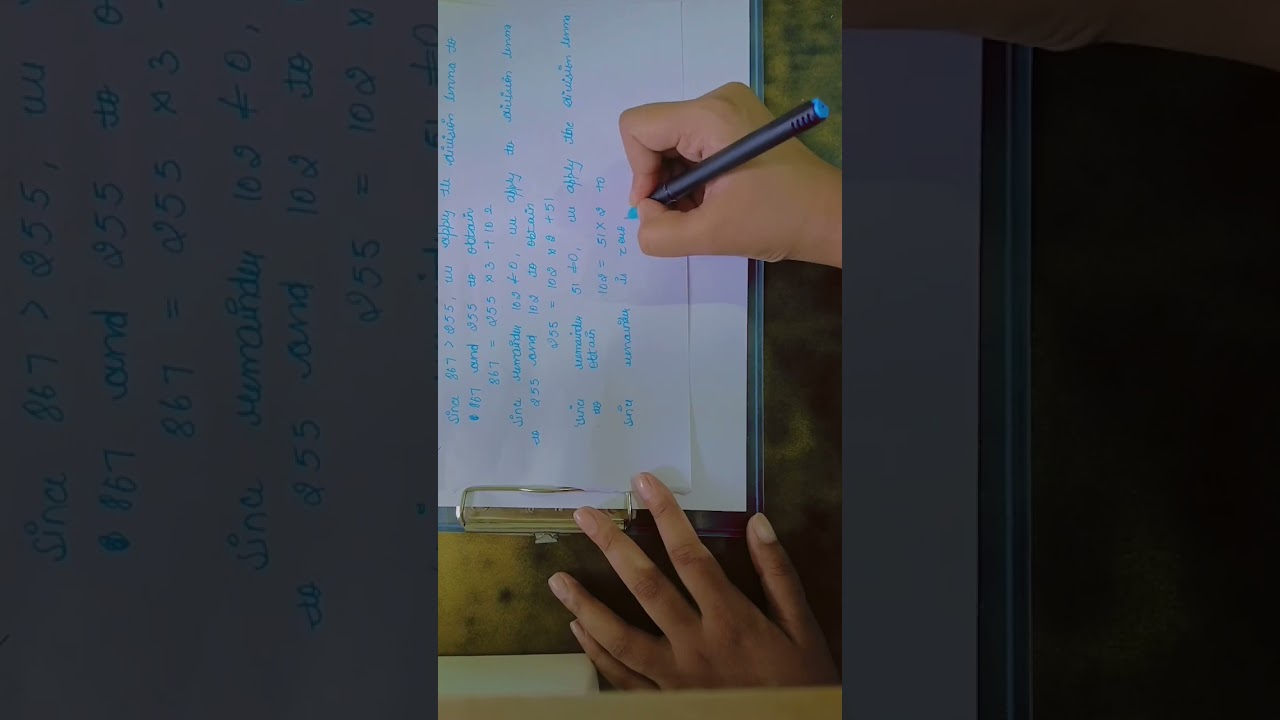 Since 867 > 255, we apply the division lemma to
867 and 255 to obtain
867 = 255 x 3 + 102
Since remainder 102 ≠ 0, we apply to division lemma
to 255 and 102 to obtain
255 = 102 x 2 + 51
Since remainder 51 ≠ 0, we apply the division lemma
to obtain 102 = 51 x 2 + 0
Since remainder is zero